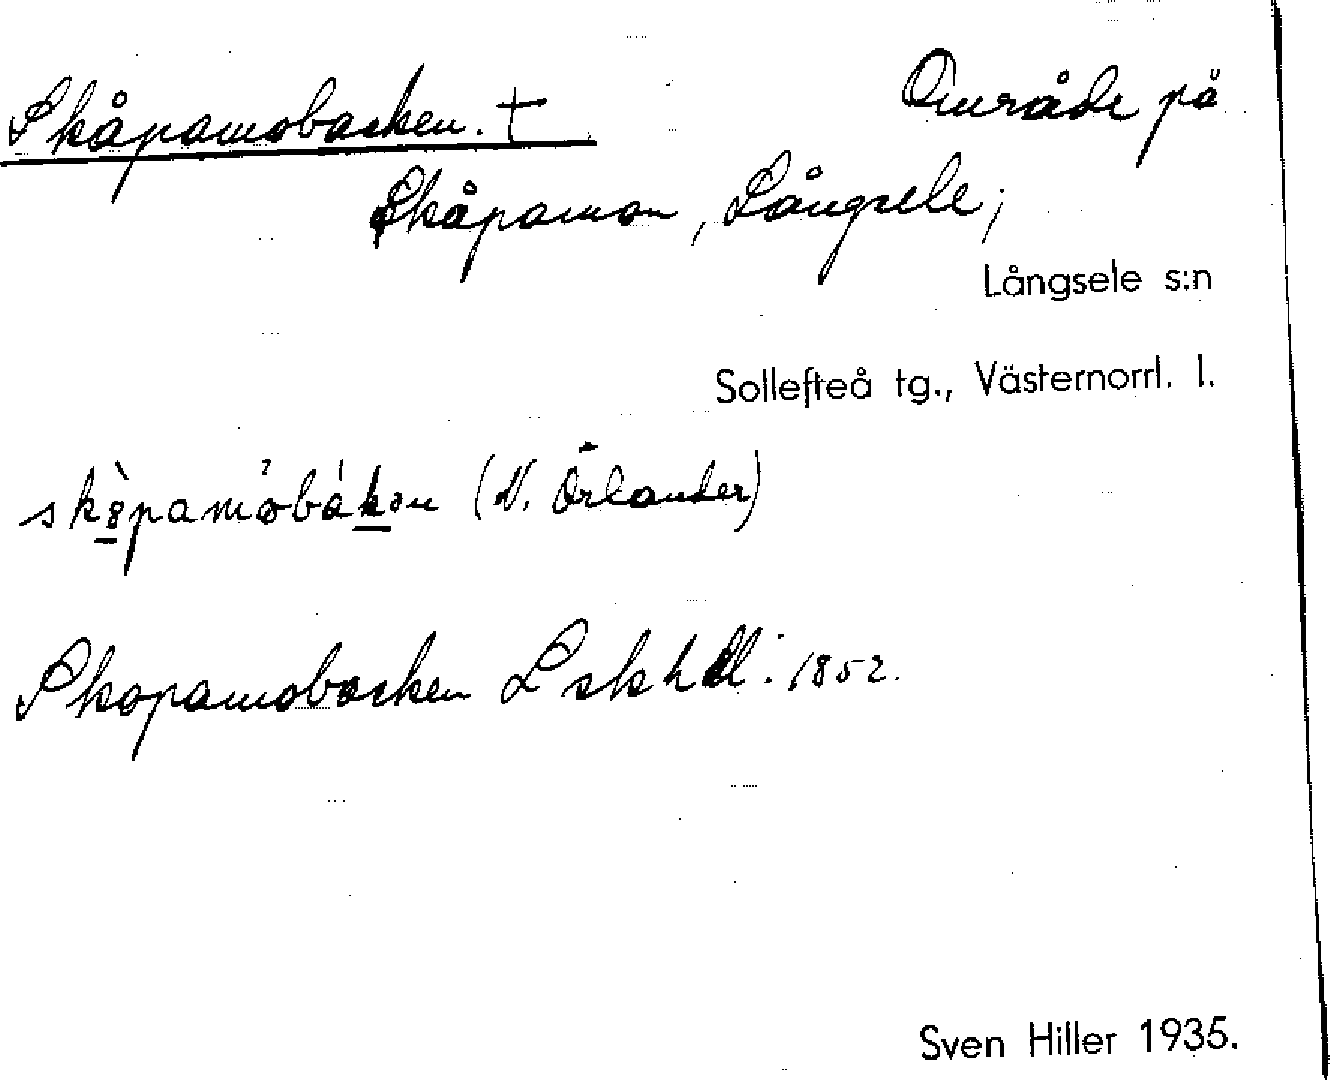 Skåpamobacken. † Område på
Skåpamon, Långsele;
Långsele s:n
Sollefteå tg., Västernorrl. l.
(N. Örlander)
Skopamobacken Lskhdl: 1852.
Sven Hiller 1935.